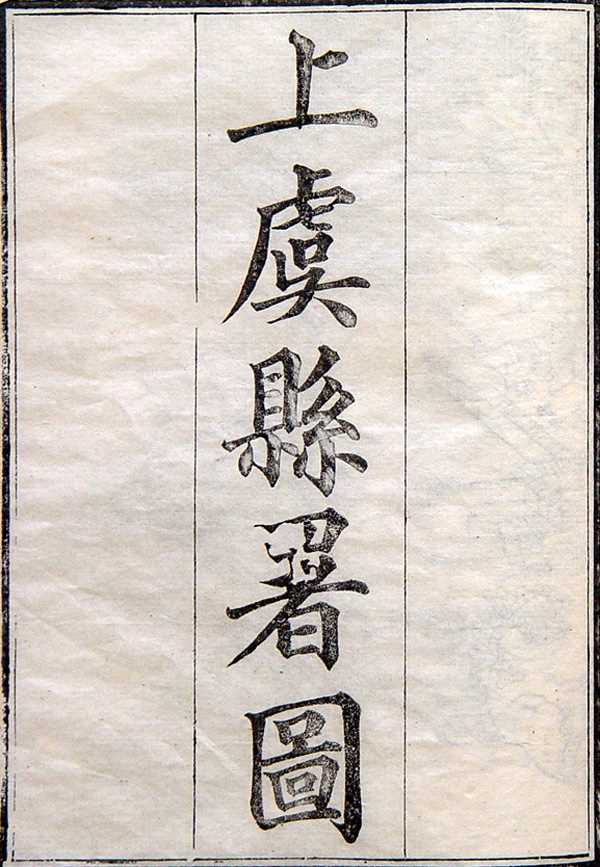 上虞縣署圖